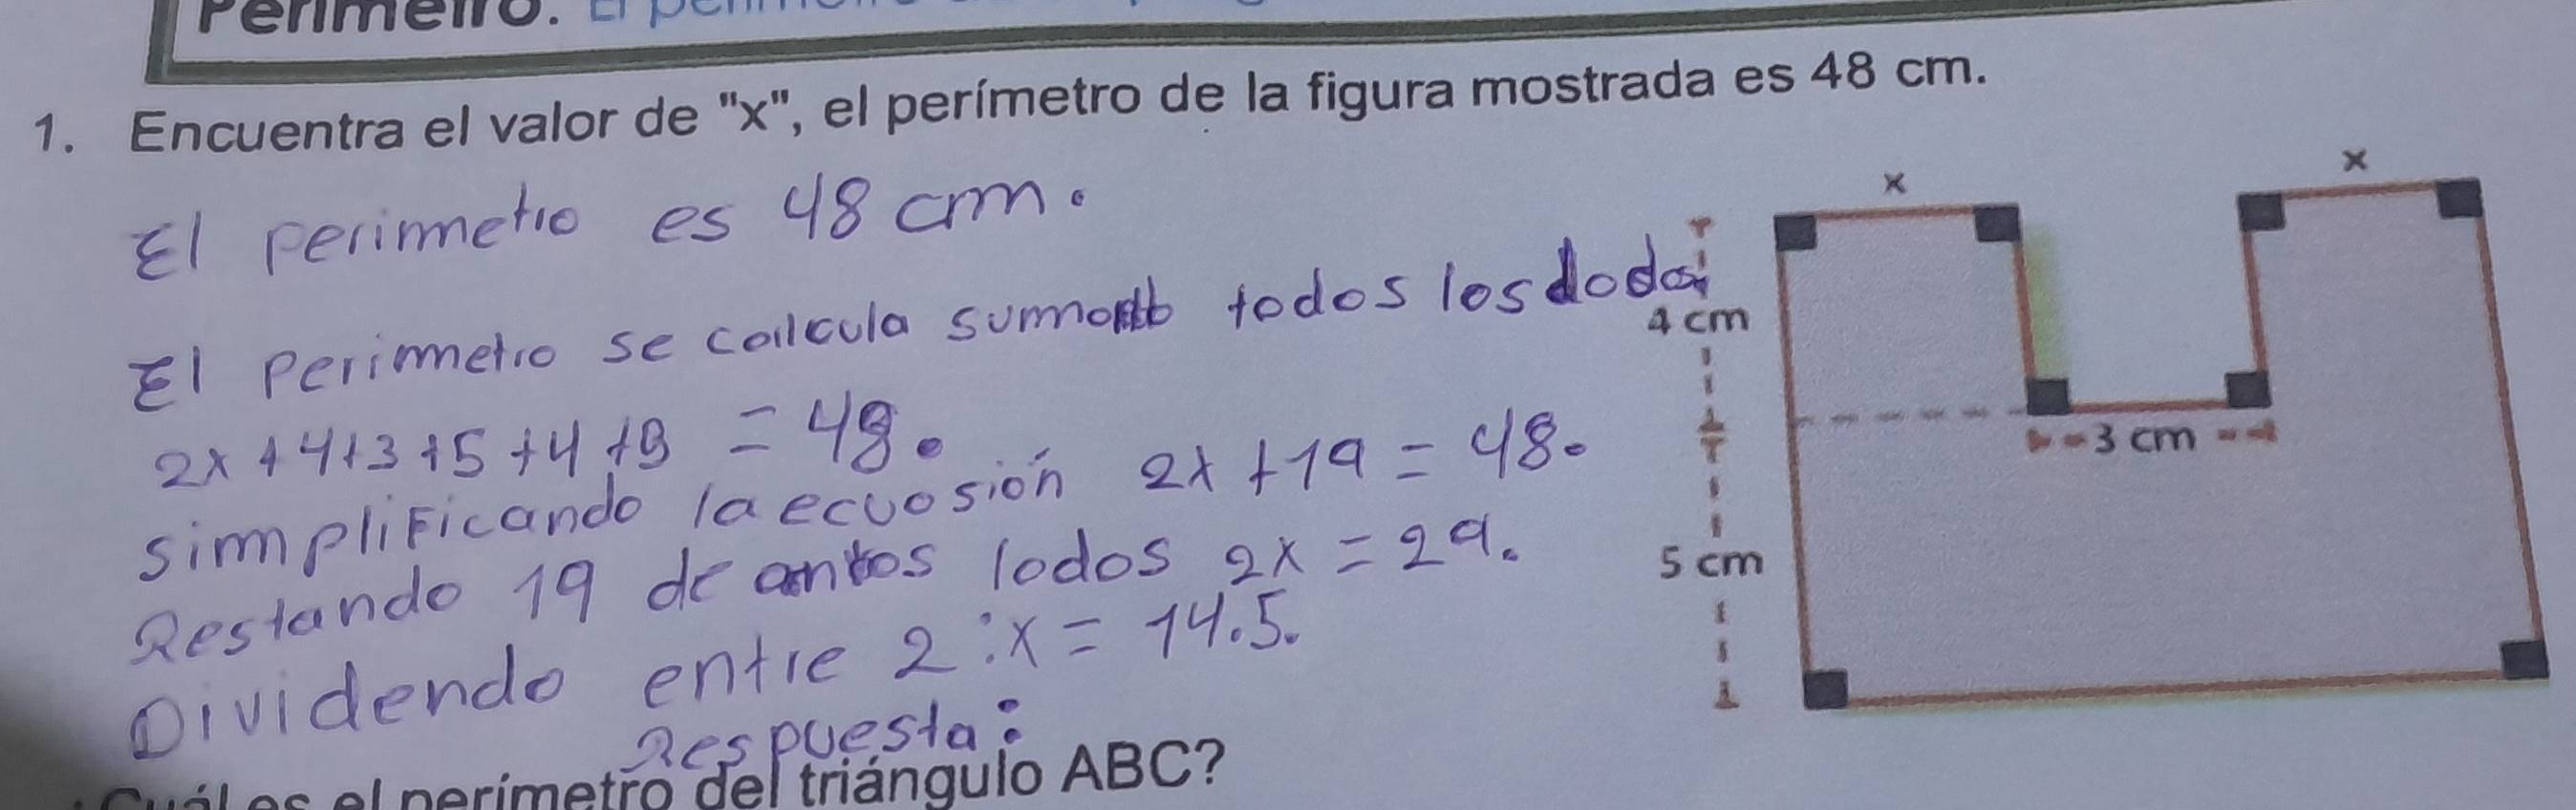 Perímetro. El
1. Encuentra el valor de "x", el perímetro de la figura mostrada es 48 cm.
El perimetro es 48 cm.
El Perimetro se calcula sumando todos los lodos
2x + 4+3+5+4+3 = 48.
simplificando la ecuosión 2x+19 = 48.
Restando 19 de ambos lodos 2x = 29.
Dividendo entre 2:x= 14.5.
Respuesta:
Cuál es el perímetro del triángulo ABC?
x
x
4 cm
3 cm
5 cm